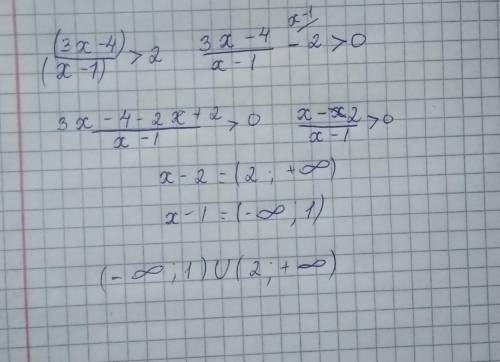 (3x-4)/(x-1) > 2   (3x-4)/(x-1) - 2^{x-1} > 0
(3x-4-2x+2)/(x-1) > 0   (x-2)/(x-1) > 0
x-2=(2;+∞)
x-1=(-∞;1)
(-∞;1)U(2;+∞)